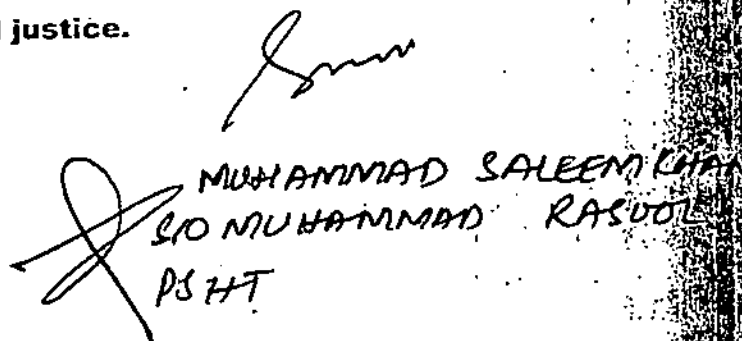 justice.
MUHAMMAD SALEEM KHAN
S/O MUHAMMAD RASOOL
PSHT